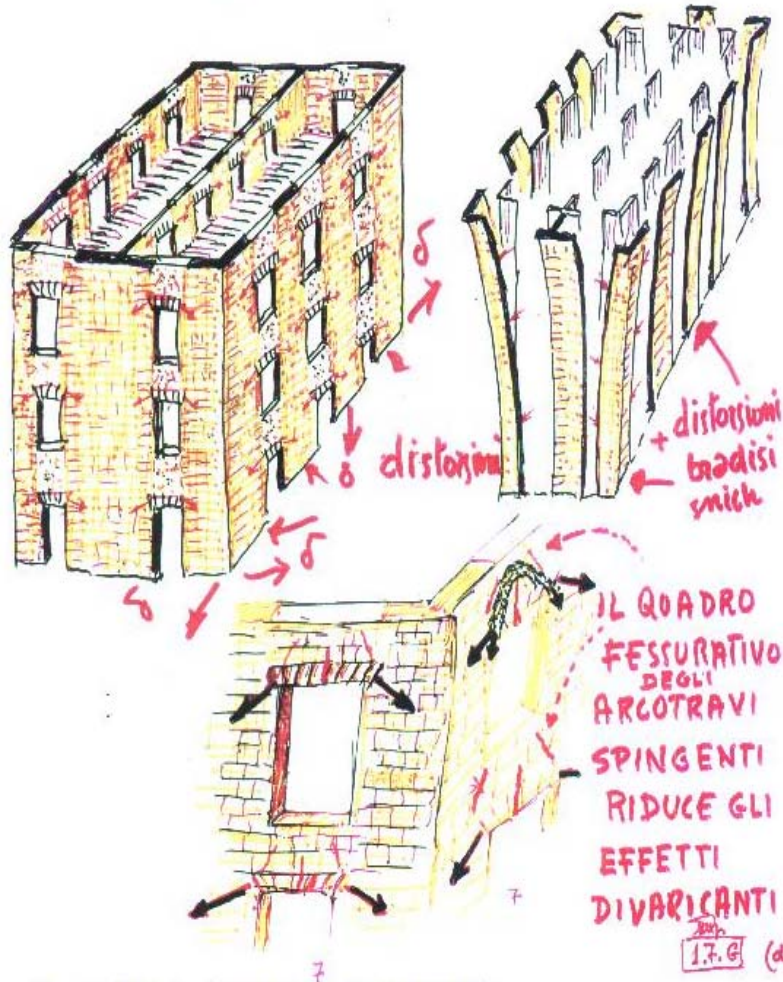 δ
distorsioni
δ
δ
δ
+ distorsioni
bradisi
smich
IL QUADRO
FESSURATIVO
DEGLI
ARCOTRAVI
SPINGENTI
RIDUCE GLI
EFFETTI
DIVARICANTI
7
7
1.7.G (d